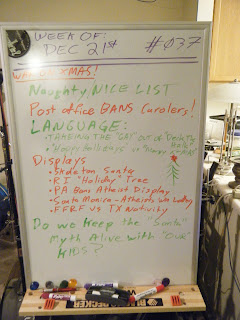 WEEK OF:
DEC 21st
#037
WAR ON XMAS!
Naughty, NICE LIST
Post office BANS Carolers!
LANGUAGE:
• TAKING THE "GAY" OUT OF "Deck The Halls"
• "Happy holidays" vs "merry X-MAS"
Displays
• Skeleton Santa
• RI "Holiday" Tree
• PA Bans Atheist Display
• Santa Monica - Atheists Won Lottery
• FFRF VS TX Nativity
Do we Keep the "Santa"
Myth Alive with "Our"
KIDS?